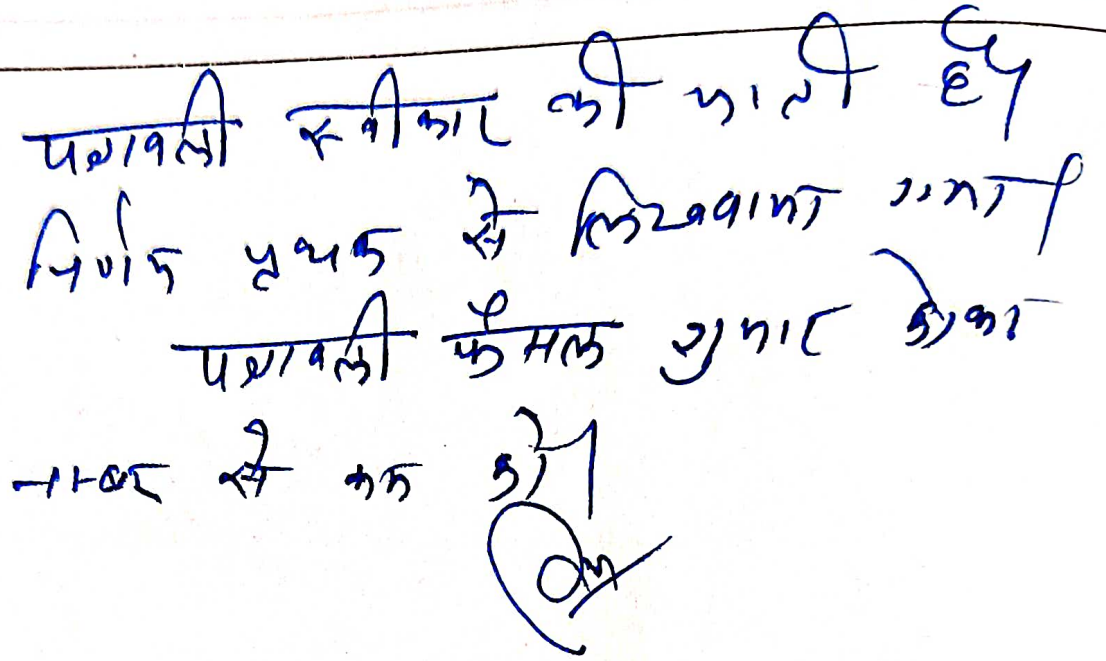 पत्रावली स्वीकार की जाती है।
निर्णय पृथक से लिखवाया गया।
पत्रावली फैसल शुमार होकर
नम्बर से कम हो।